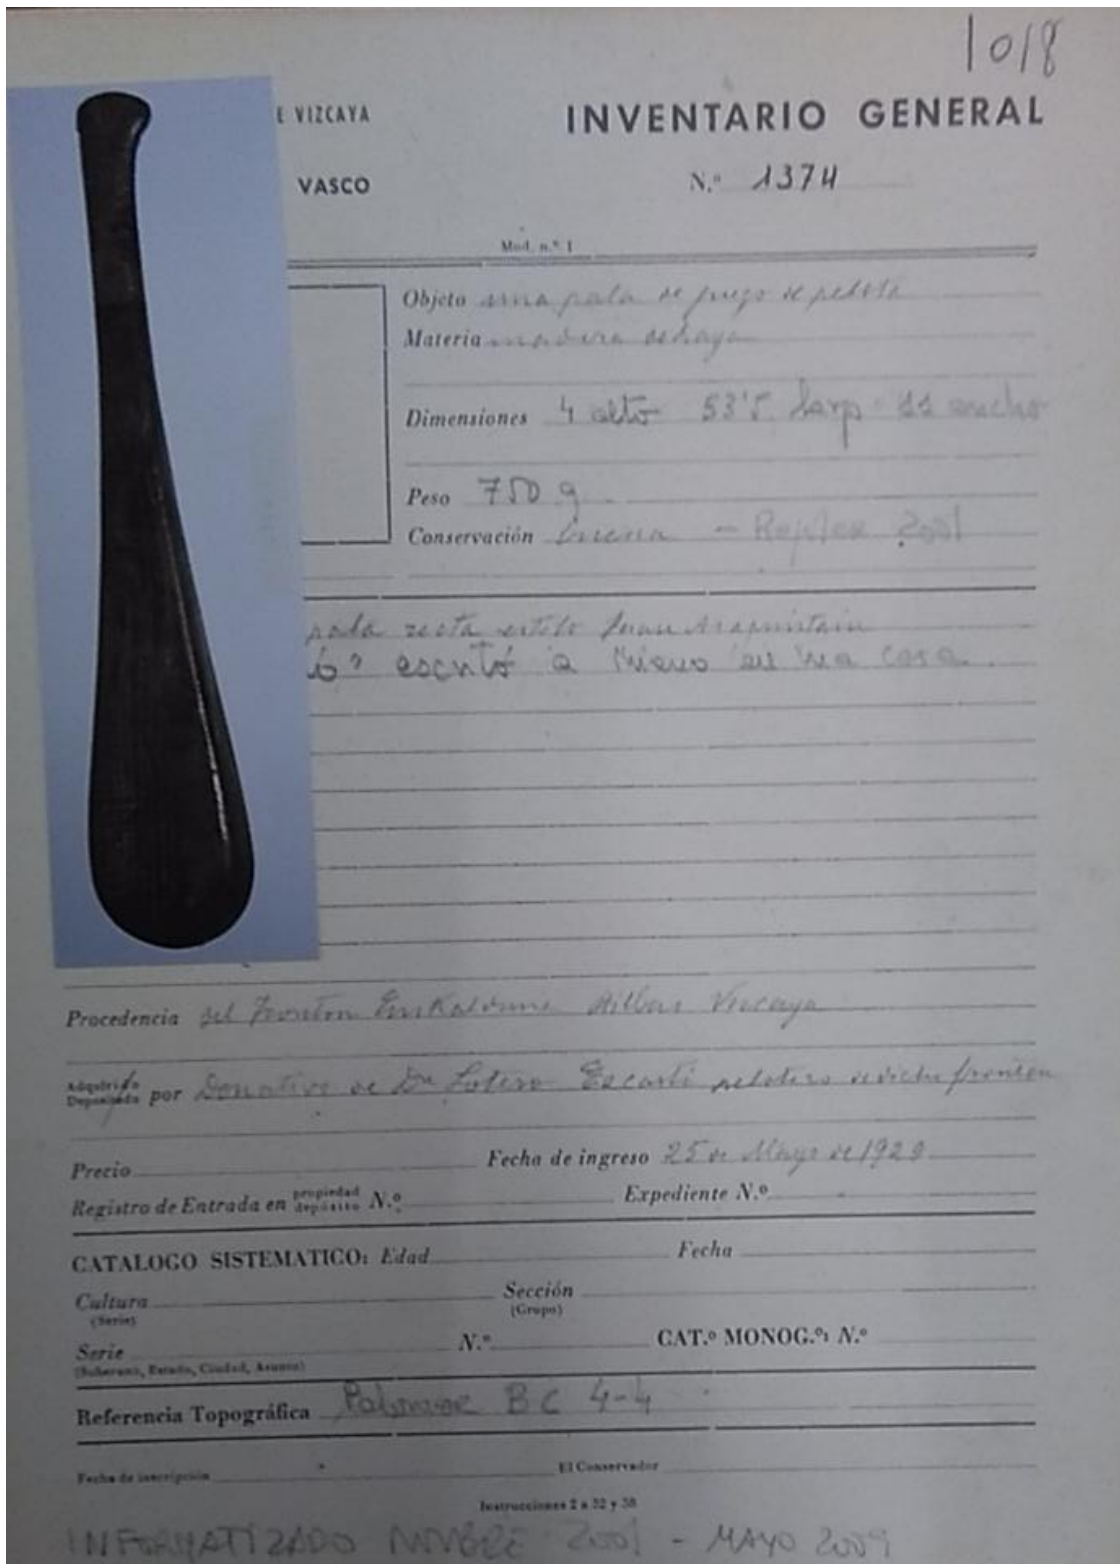 1018
E VIZCAYA
INVENTARIO GENERAL
VASCO
N.º 1374
Mod. n.º 1
Objeto una pala de juego de pelota
Materia madera de haya
Dimensiones 4 alto 53'5 largo 11 ancho
Peso 750 g
Conservación buena - 2001
pala recta estilo Juan
ó" escrito a mano en una cara
Procedencia del Fronton Euskalduna Bilbao Vizcaya
Adquirido
Depositado por Donativo de Dn Escarti pelotero de dicho fronton
Precio Fecha de ingreso 25 de Mayo de 1920
Registro de Entrada en propiedad depósito N.º Expediente N.º
CATALOGO SISTEMATICO: Edad Fecha
Cultura Sección
(Serie) (Grupo)
Serie N.º CAT.º MONOG.º: N.º
(Soberano, Estado, Ciudad, Asunto)
Referencia Topográfica BC 4-4
Fecha de inscripción El Conservador
Instrucciones 2 a 32 y 38
INFORMATIZADO NVBRE 2001 - MAYO 2009